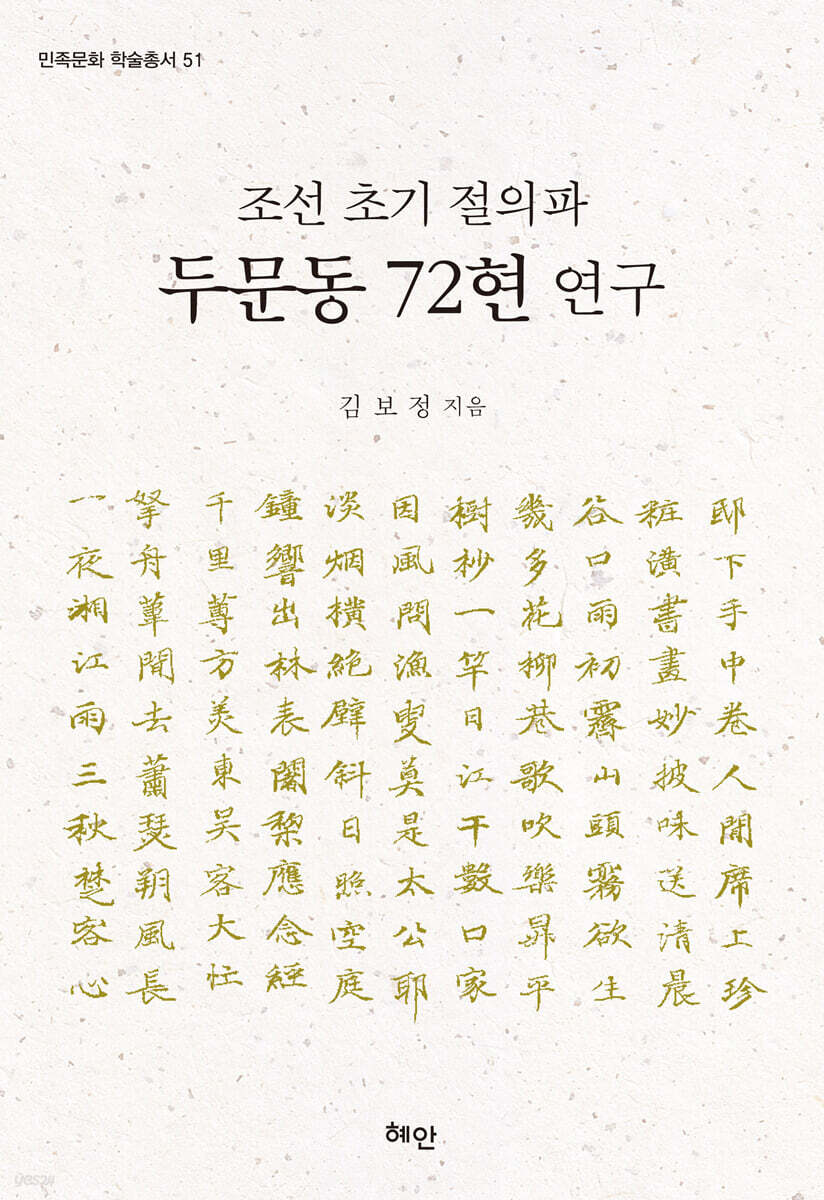 민족문화 학술총서 51
조선 초기 절의파
두문동 72현 연구
김보정 지음
邸下手中卷人閒席上珍
粧潢書畫妙披味送清晨
谷口雨初霽山頭霧欲生
幾多花柳巷歌吹樂昇平
樹杪一竿日江干數口家
因風問漁叟莫是太公耶
淡烟橫絶壁斜日照空庭
鐘響出林表闍梨應念經
千里蓴方美東吳客大忙
拏舟葦閒去蕭瑟朔風長
一夜湘江雨三秋楚客心
혜안
yes24